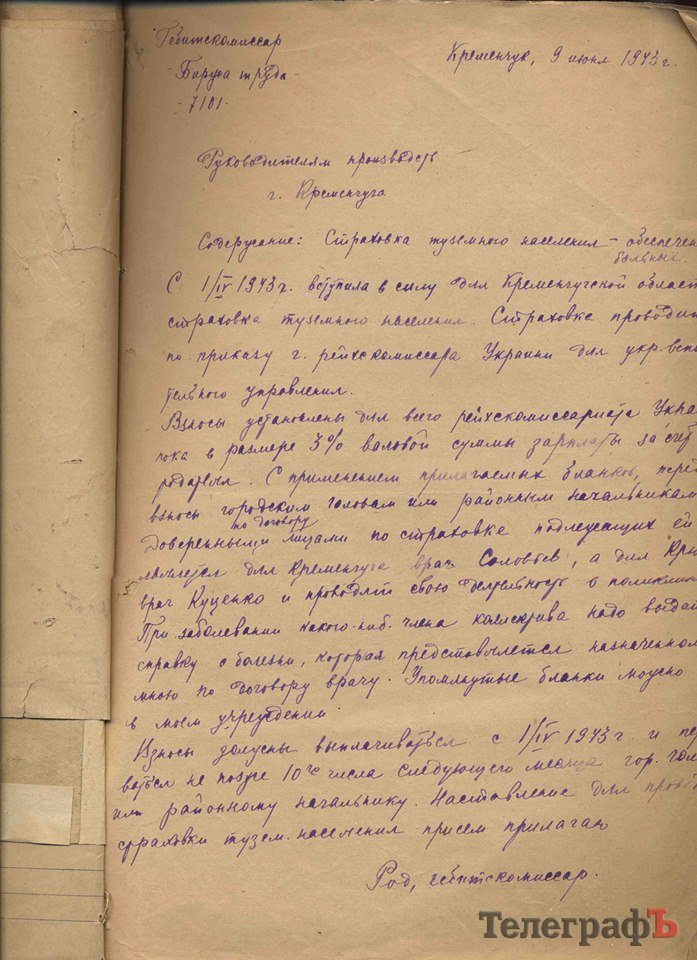 Гебитскомиссар
Кременчук, 9 июня 1943 г.
- Биржа труда -
- 7101 -
Руководителям производств
г. Кременчуга
Содержание: Страховка туземного населения - обеспечен
больных
С 1/IV 1943 г. вступила в силу для Кременчугской област
страховка туземного населения. Страховка проводит
по приказу г. рейхскомиссара Украины для укр. вспо
тельного управления.
Взносы установлены для всего рейхскомиссариата Укра
пока в размере 3% валовой суммы зарплаты за счет
родателя. С применением прилагаемых бланков, пере
взносы городским головам или районным начальникам
по договору
Доверенными лицами по страховке подлежащих ей
является для Кременчуга врач Соловьев, а для Крю
врач Куценко и проводят свою деятельность в поликлин
При заболевании какого-ниб. члена коллектива надо выдат
справку о болезни, которая представляется назначенном
мною по договору врачу. Упомянутые бланки можно
в моем учреждении.
Взносы должны выплачиваться с 1/IV 1943 г. и пер
ваться не позже 10го числа следующего месяца гор. голо
или районному начальнику. Наставление для пров
страховки тузем. населения при сем прилагаю
Род, гебитскомиссар.
ТелеграфЪ